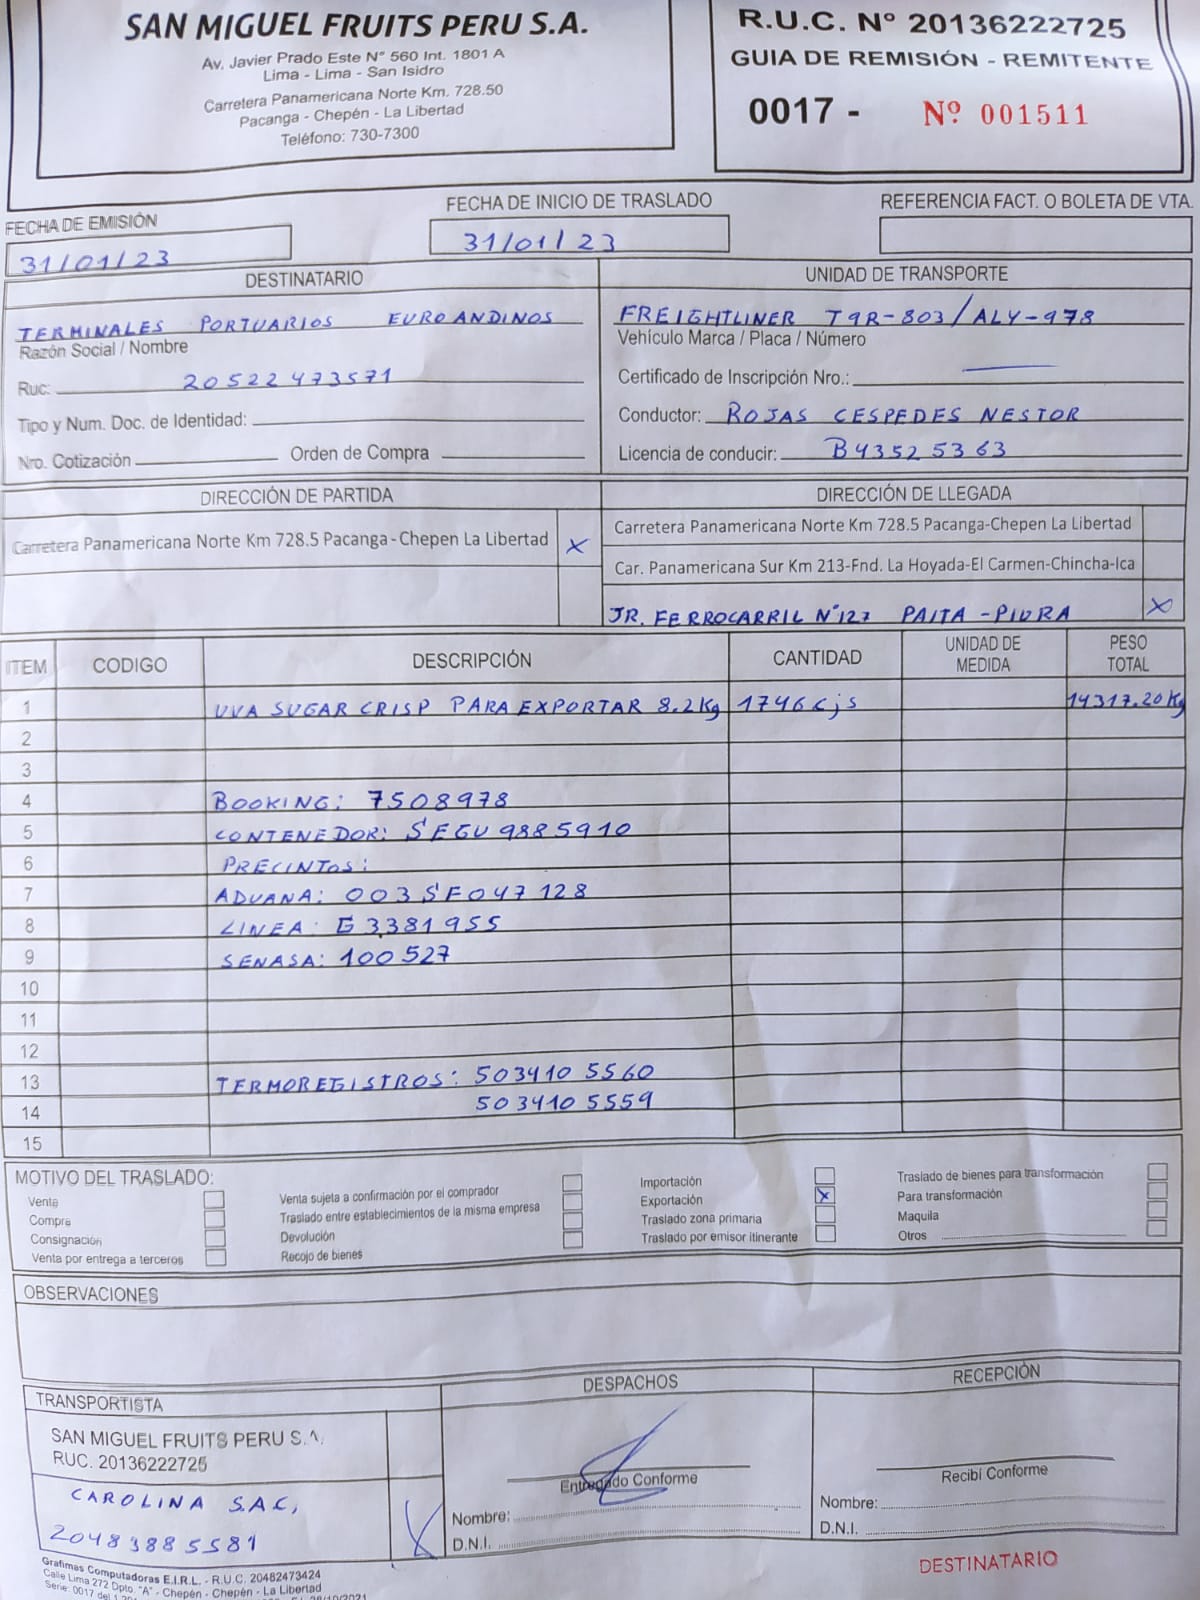 SAN MIGUEL FRUITS PERU S.A.
Av. Javier Prado Este N° 560 Int. 1801 A
Lima - Lima - San Isidro
Carretera Panamericana Norte Km. 728.50
Pacanga - Chepén - La Libertad
Teléfono: 730-7300
R.U.C. Nº 20136222725
GUIA DE REMISIÓN - REMITENTE
0017 - Nº 001511
FECHA DE EMISIÓN
31/01/23
FECHA DE INICIO DE TRASLADO
31/01/23
REFERENCIA FACT. O BOLETA DE VTA.
DESTINATARIO
TERMINALES PORTUARIOS EUROANDINOS
Razón Social / Nombre
Ruc: 20522473571
Tipo y Num. Doc. de Identidad:
Nro. Cotización Orden de Compra
UNIDAD DE TRANSPORTE
FREIGHTLINER T9R-803/ALY-978
Vehículo Marca / Placa / Número
Certificado de Inscripción Nro.:
Conductor: ROJAS CESPEDES NESTOR
Licencia de conducir: B43525363
DIRECCIÓN DE PARTIDA
Carretera Panamericana Norte Km 728.5 Pacanga-Chepen La Libertad X
DIRECCIÓN DE LLEGADA
Carretera Panamericana Norte Km 728.5 Pacanga-Chepen La Libertad
Car. Panamericana Sur Km 213-Fnd. La Hoyada-El Carmen-Chincha-Ica
JR. FERROCARRIL N°127 PAITA - PIURA X
ITEM CODIGO DESCRIPCIÓN CANTIDAD UNIDAD DE MEDIDA PESO TOTAL
1 UVA SUGAR CRISP PARA EXPORTAR 8.2Kg 1746 cjs 14317.20 Kg
2
3
4 BOOKING: 7508978
5 CONTENEDOR: SEGU 9885910
6 PRECINTOS:
7 ADUANA: 003SF047128
8 LINEA: G3381955
9 SENASA: 100527
10
11
12
13 TERMOREGISTROS: 5034105560
14 5034105559
15
MOTIVO DEL TRASLADO:
Venta
Compra
Consignación
Venta por entrega a terceros
Venta sujeta a confirmación por el comprador
Traslado entre establecimientos de la misma empresa
Devolución
Recojo de bienes
Importación
Exportación X
Traslado zona primaria
Traslado por emisor itinerante
Traslado de bienes para transformación
Para transformación
Maquila
Otros
OBSERVACIONES
TRANSPORTISTA
SAN MIGUEL FRUITS PERU S.A.
RUC. 20136222725
CAROLINA S.A.C,
20483885581 X
DESPACHOS
Entregado Conforme
Nombre:
D.N.I.
RECEPCIÓN
Recibí Conforme
Nombre:
D.N.I.
Grafimas Computadoras E.I.R.L. - R.U.C. 20482473424
Calle Lima 272 Dpto. "A" - Chepén - Chepén - La Libertad
Serie: 0017 del
DESTINATARIO